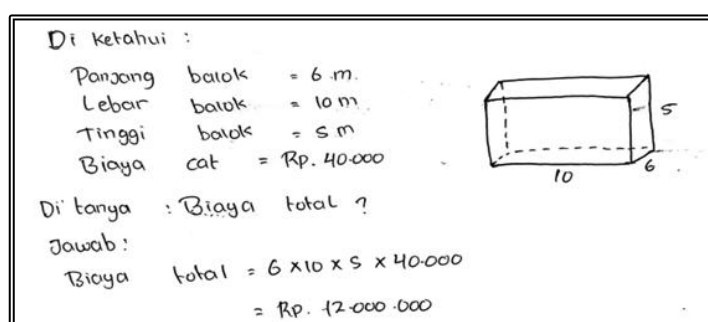 Di ketahui :
Panjang balok = 6 m.
Lebar balok = 10 m
Tinggi balok = 5 m
Biaya cat = Rp. 40.000
5
6
10
Di tanya : Biaya total ?
Jawab :
Biaya total = 6 x 10 x 5 x 40.000
= Rp. 12.000.000